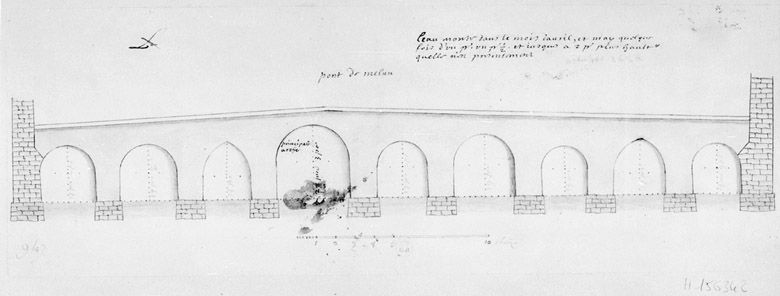 l'eau monte dans le mois d'avril, et may quelque
fois d'un p^i. un p^i ½. et jusques a 2 p^i plus haulte
quelle n'est presentement
pont de melun
principalle
arche
1 2 3 4 5 10
942
H 156342